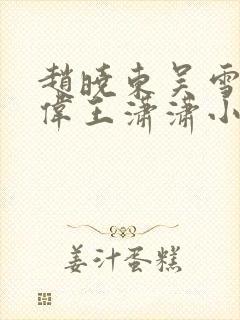 趙曉東吳雪
偉王瀟瀟小
姜汁蛋糕